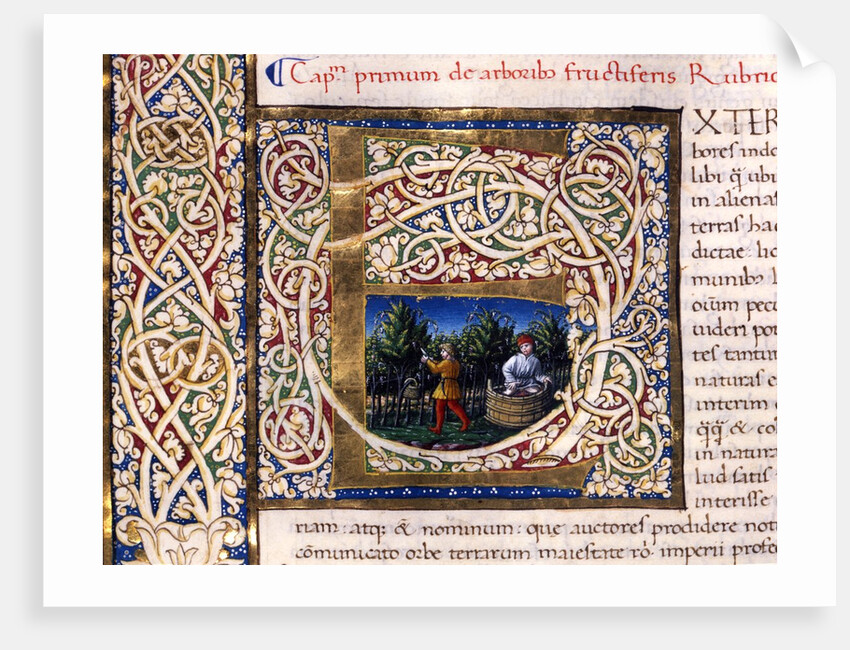 Cap.ᵐ primum de arboribꝯ fructiferis Rubric
E
XTER
bores inde
libi q̃ ubi
in alienas
terras hac
dictae: lic
munibꝯ l
oium̃ pecu
uideri por
tes tantum
naturas e
interim c
q̃q̃ & col
in natura
lud satis
interisse
riam: atq; & nominum: que auctores prodidere noti
cõmunicato orbe terrarum maiestate rõ. imperii profec